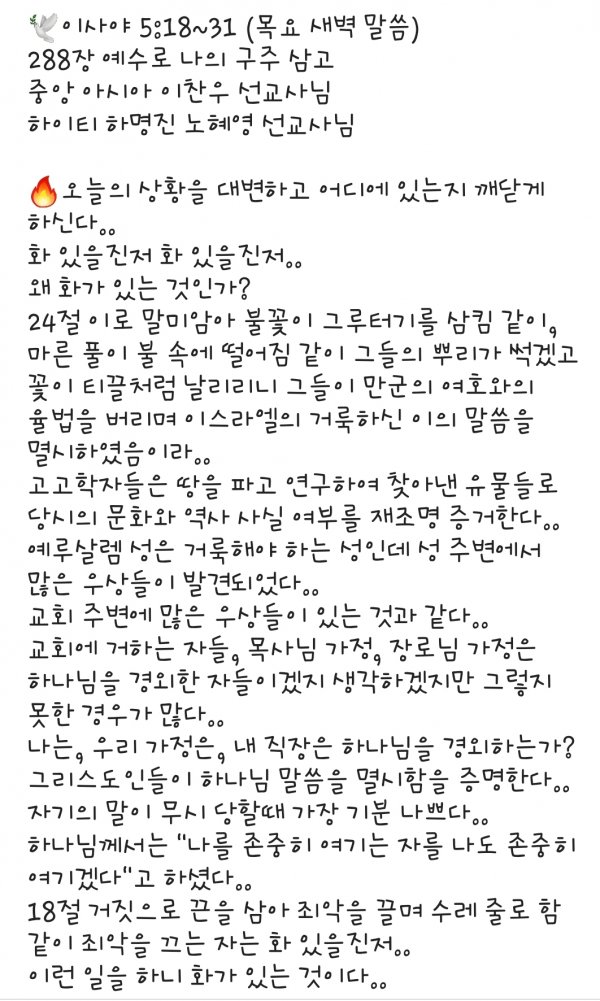 🕊이사야 5:18~31 (목요 새벽 말씀)
288장 예수로 나의 구주 삼고
중앙 아시아 이찬우 선교사님
하이티 하명진 노혜영 선교사님
🔥오늘의 상황을 대변하고 어디에 있는지 깨닫게
하신다..
화 있을진저 화 있을진저..
왜 화가 있는 것인가?
24절 이로 말미암아 불꽃이 그루터기를 삼킴 같이,
마른 풀이 불 속에 떨어짐 같이 그들의 뿌리가 썩겠고
꽃이 티끌처럼 날리리니 그들이 만군의 여호와의
율법을 버리며 이스라엘의 거룩하신 이의 말씀을
멸시하였음이라..
고고학자들은 땅을 파고 연구하여 찾아낸 유물들로
당시의 문화와 역사 사실 여부를 재조명 증거한다..
예루살렘 성은 거룩해야 하는 성인데 성 주변에서
많은 우상들이 발견되었다..
교회 주변에 많은 우상들이 있는 것과 같다..
교회에 거하는 자들, 목사님 가정, 장로님 가정은
하나님을 경외한 자들이겠지 생각하겠지만 그렇지
못한 경우가 많다..
나는, 우리 가정은, 내 직장은 하나님을 경외하는가?
그리스도인들이 하나님 말씀을 멸시함을 증명한다..
자기의 말이 무시 당할때 가장 기분 나쁘다..
하나님께서는 "나를 존중히 여기는 자를 나도 존중히
여기겠다"고 하셨다..
18절 거짓으로 끈을 삼아 죄악을 끌며 수레 줄로 함
같이 죄악을 끄는 자는 화 있을진저..
이런 일을 하니 화가 있는 것이다..